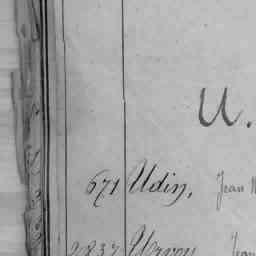 U.
671 Udin, Jean
2837 Urvoy Jean